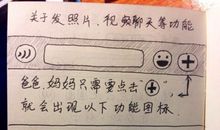 关于发照片、视频聊天等功能
爸爸,妈妈只需要点击"⊕",
就会出现以下功能图标.